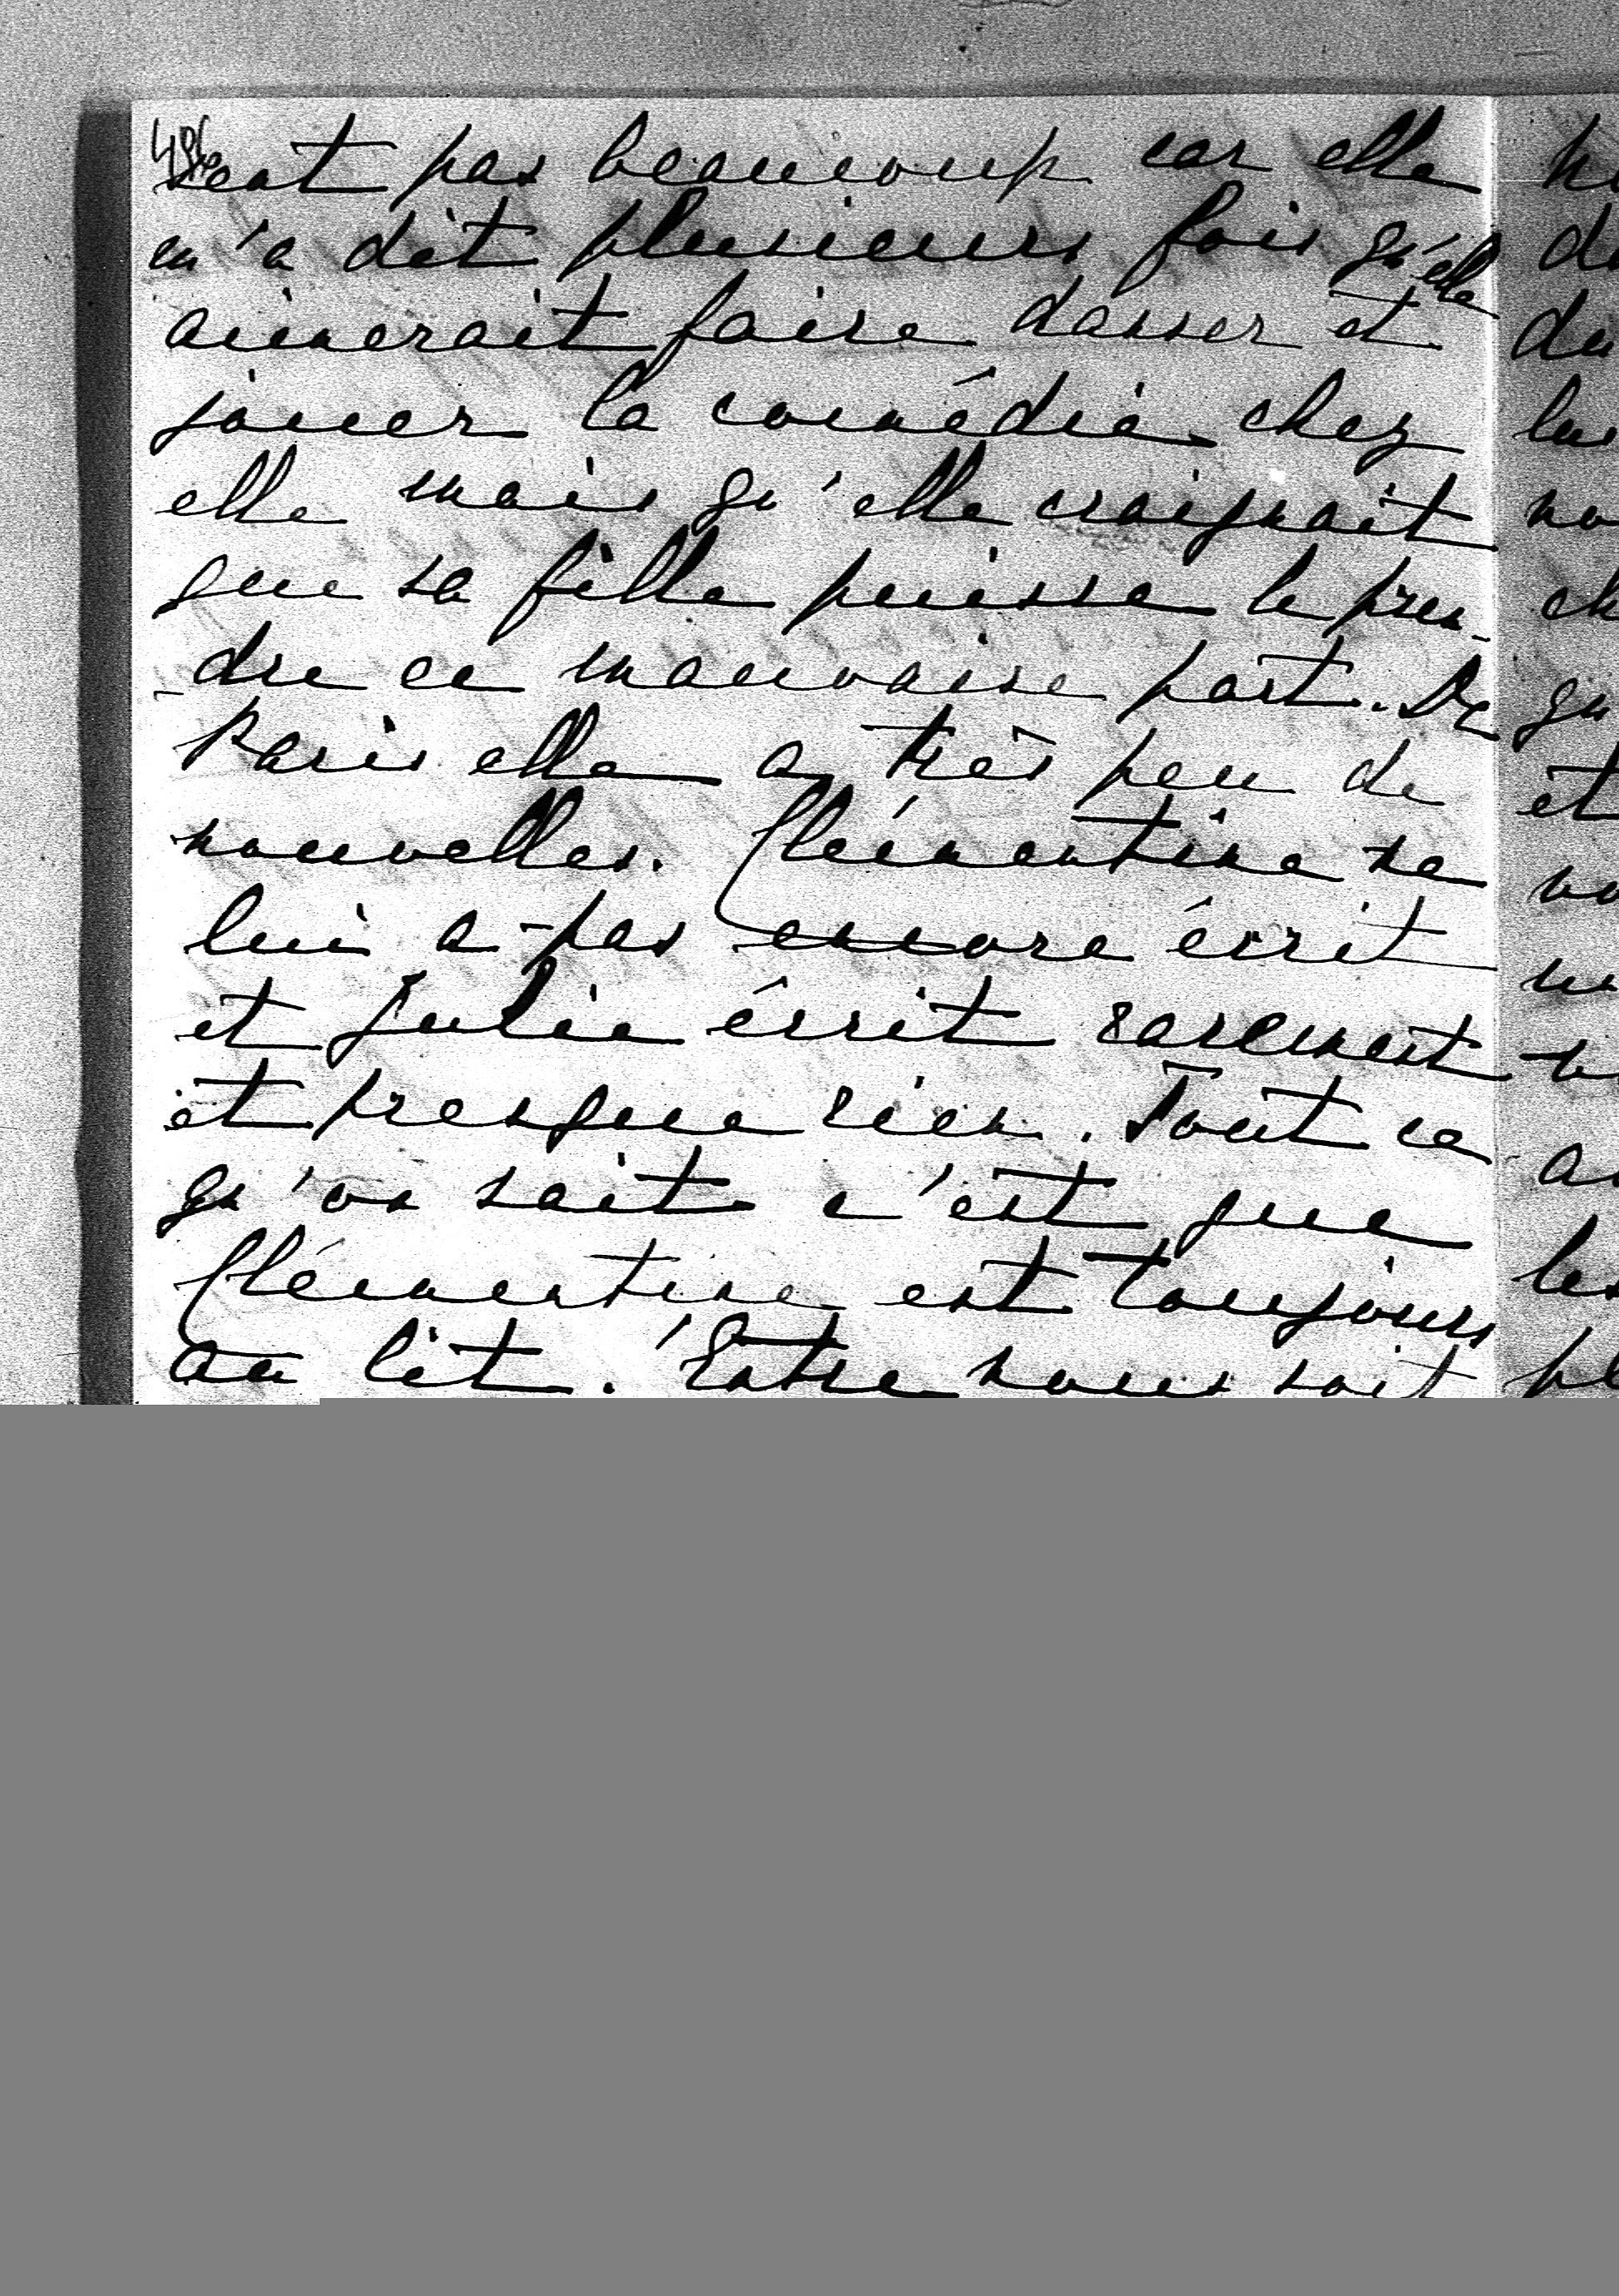 sent pas beaucoup car elle
m'a dit plusieurs fois qu'elle
aimerait faire danser et
jouer la comédie chez
elle mais qu'elle craignait
que sa fille puisse le pren-
-dre en mauvaise part. De
Paris elle a très peu de
nouvelles. Clémentine ne
lui a pas encore écrit
et Julie écrit rarement
et presque rien. Tout ce
qu'on sait c'est que
Clémentine est toujours
au lit. Entre nous soit